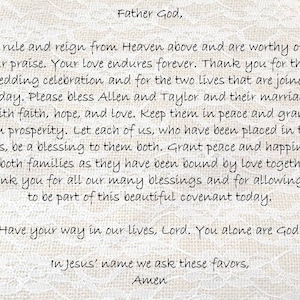 Father God,
rule and reign from Heaven above and are worthy o
r praise. Your love endures forever. Thank you for th
edding celebration and for the two lives that are join
day. Please bless Allen and Taylor and their marria
ith faith, hope, and love. Keep them in peace and gra
n prosperity. Let each of us, who have been placed in t
s, be a blessing to them both. Grant peace and happin
both families as they have been bound by love togeth
nk you for all our many blessings and for allowing
to be part of this beautiful covenant today.
Have your way in our lives, Lord. You alone are God
In Jesus' name we ask these favors,
Amen